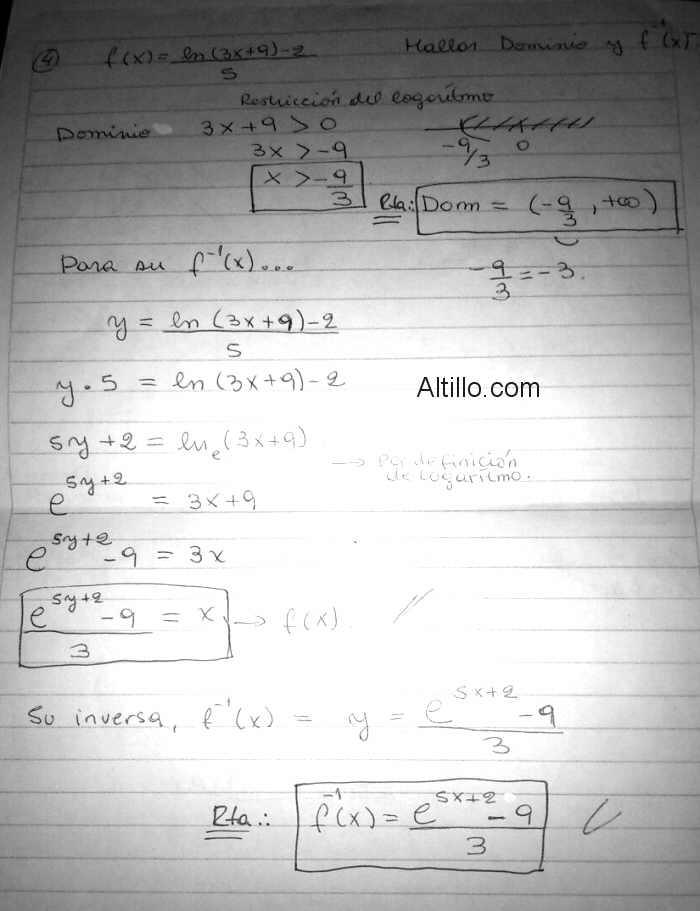 ④ f(x) = ln(3x+9)-2 / 5 Hallar Dominio y f⁻¹(x).
Restricción del logarítmo
Dominio 3x+9 > 0
3x > -9
-9/3 0
x > -9/3
Rta: Dom = (-9/3, +∞)
Para su f⁻¹(x)...
-9/3 = -3.
y = ln(3x+9)-2 / 5
y . 5 = ln(3x+9)-2
Altillo.com
5y+2 = lnₑ(3x+9)
→ Por definición
de logarítmo.
e^(5y+2) = 3x+9
e^(5y+2) -9 = 3x
e^(5y+2) -9 / 3 = x → f(x).
Su inversa, f⁻¹(x) = y = e^(5x+2) -9 / 3
Rta.: f⁻¹(x) = e^(5x+2) -9 / 3